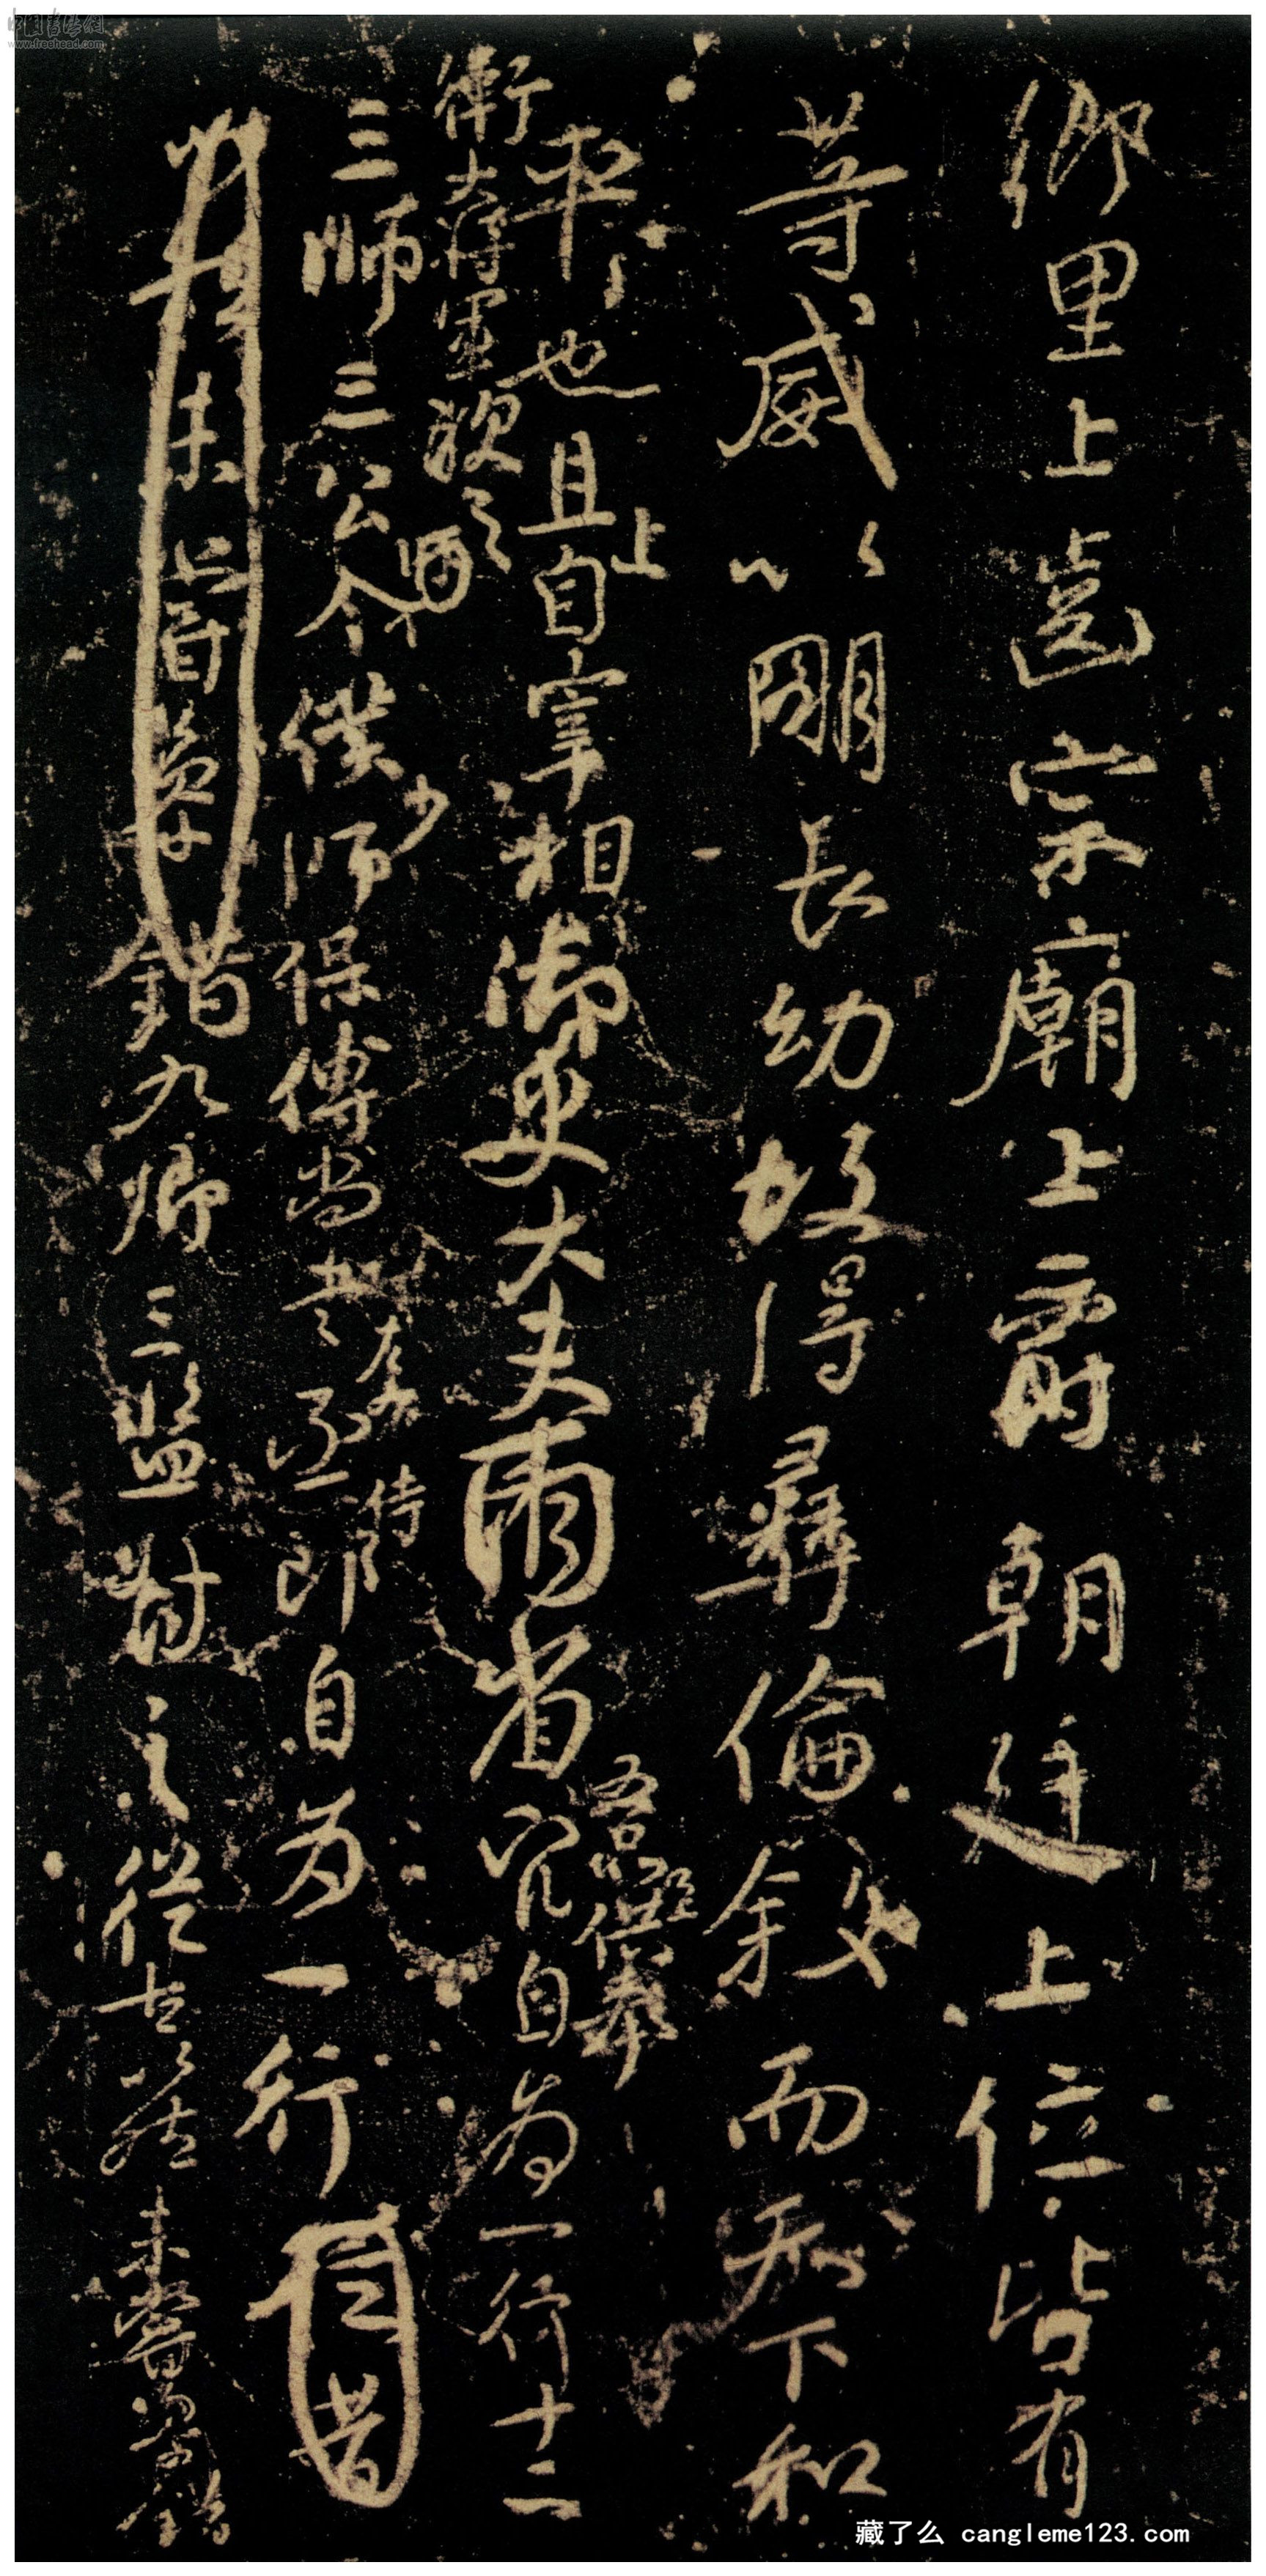 鄉里上齒宗廟上爵朝廷上位皆有
等威以明長幼故得彝倫敘而天下和
平也且上自宰相御史大夫兩省五品已上供奉官自為一行十二
衛大將軍次之
三師三公令僕少師保傅尚書左右丞侍郎自為一行
九卿三監對之從古以然未嘗參錯
中國書法網
www.freehead.com
藏了么 cangleme123.com